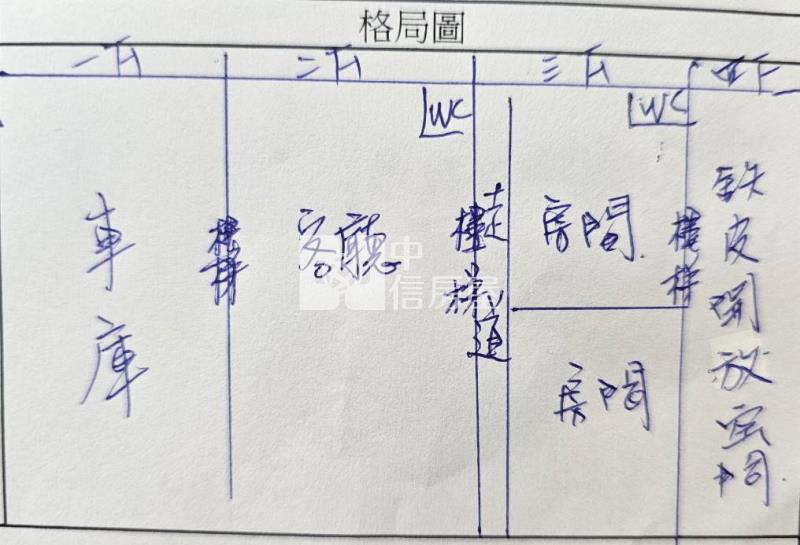 格局圖
一下
二下
三下
四下
WC
WC
車庫
樓梯
客廳
樓梯
走道
房間
房間
樓梯
鉄皮開放空間
中信房屋